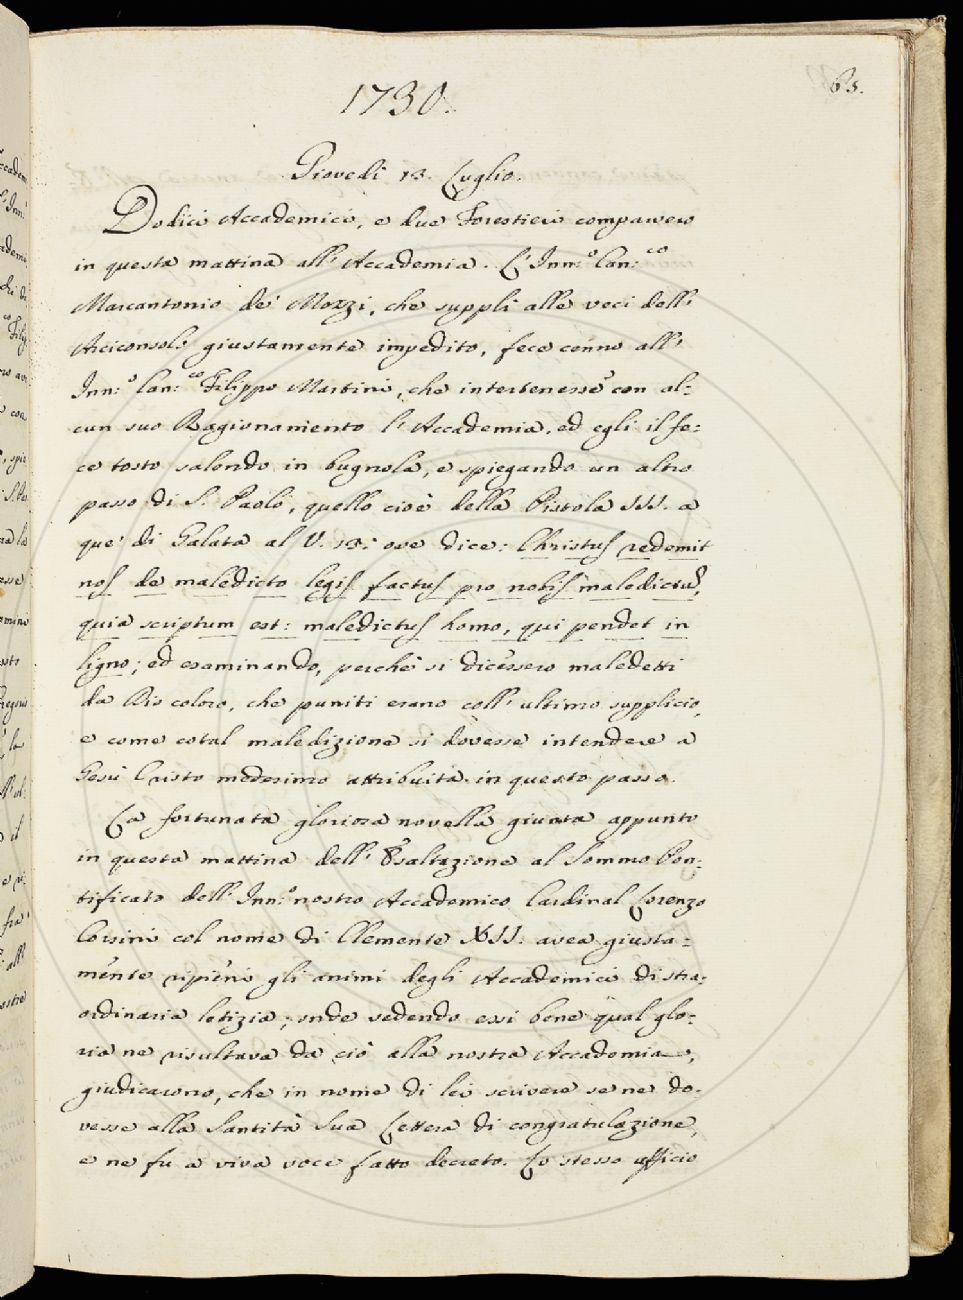 65.
1730.
Giovedì 13. Luglio.
Dodici Accademici, e due Forestieri comparvero
in questa mattina all' Accademia. L' Inn:º Can:co
Marcantonio de' Mozzi, che supplì alle veci dell'
Arciconsolo giustamente impedito, fece cenno all'
Inn:º Can:co Filippo Martini, che intertenesse con al-
cun suo Ragionamento l' Accademia, ed egli il fe-
ce tosto salendo in bugnola, e spiegando un altro
passo di S. Paolo, quello cioè della Pistola III. a
que' di Galata al V. 13: ove dice: Christus redemit
nos de maledicto legis factus pro nobis maledictũ,
quia scriptum est: maledictus homo, qui pendet in
ligno; ed esaminando, perchè si dicessero maledetti
da Dio coloro, che puniti erano coll' ultimo supplicio,
e come cotal maledizione si dovesse intendere a
Gesù Cristo medesimo attribuita in questo passo.
La fortunata gloriosa novella giunta appunto
in questa mattina dell' Esaltazione al Sommo Pon-
tificato dell' Inn:º nostro Accademico Cardinal Lorenzo
Corsini col nome di Clemente XII. avea giusta-
mente ripieni gli animi degli Accademici di stra-
ordinaria letizia; onde vedendo essi bene qual glo-
ria ne risultava da ciò alla nostra Accademia,
giudicarono, che in nome di lei scrivere se ne do-
vesse alla Santità Sua Lettera di congratulazione,
e ne fu a viva voce fatto decreto. Lo stesso ufficio